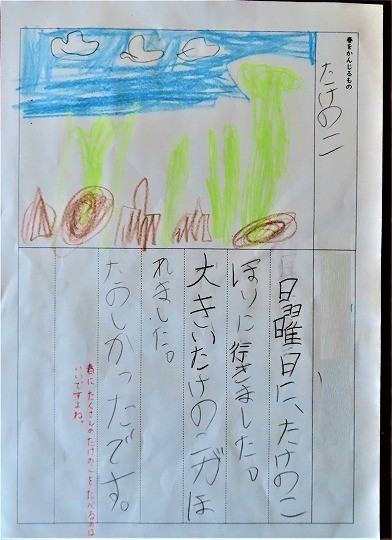 春をかんじるもの
たけのこ
日曜日に、たけのこ
ほりに行きました。
大きいたけのこがほ
れました。
たのしかったです。
春に、たくさんのたけのこをたべるのは
いいですよね。